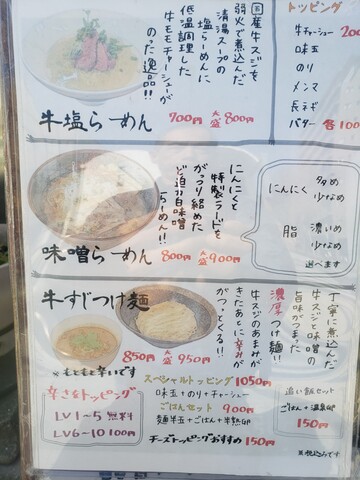 国産牛スジを
弱火で煮込んだ
清湯スープの
塩らーめんに
低温調理した
牛モモチャーシューが
のった逸品!!
牛塩らーめん 700円 大盛 800円
トッピング
牛チャーシュー 200
味玉
のり
メンマ
長ネギ
バター 各100
にんにくと
特製ラードを
がっつり絡めた
ど迫力味噌
らーめん!!
味噌らーめん 800円 大盛 900円
にんにく 多め
少なめ
脂 濃いめ
少なめ
選べます
牛すじつけ麺
丁寧に煮込んだ
牛スジと味噌の
旨味がつまった
濃厚つけ麺!!
牛スジのあまみが
きたあとに辛みが
がつってくる!!
850円 大盛 950円
※もともと辛いです
辛さ&トッピング
LV1~5 無料
LV6~10 100円
スペシャルトッピング 1050円
味玉+のり+チャーシュー
ごはんセット 900円
麺半玉+ごはん+半熟卵
チーズトッピングおすすめ 150円
追い飯セット
ごはん+温泉卵
150円
※税込みです